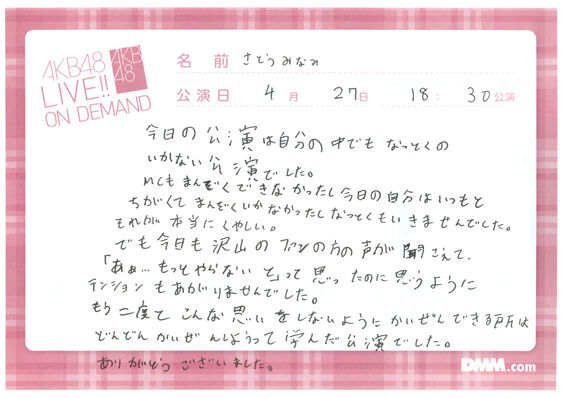 AKB48
LIVE!!
ON DEMAND
AKB
48
名 前 さとうみなみ
公演日 4月 27日 18:30公演
今日の公演は自分の中でもなっとくの
いかない公演でした。
MCもまんぞくできなかったし今日の自分はいつもと
ちがくてまんぞくいかなかったしなっとくもいきませんでした。
それが本当にくやしい。
でも今日も沢山のファンの方の声が聞こえて、
「あぁ…もっとやらないと」って思ったのに思うように
テンションもあがりませんでした。
もう二度とこんな思いをしないようにかいぜんできる所は
どんどんかいぜんしようって学んだ公演でした。
ありがとうございました。
DMM.com